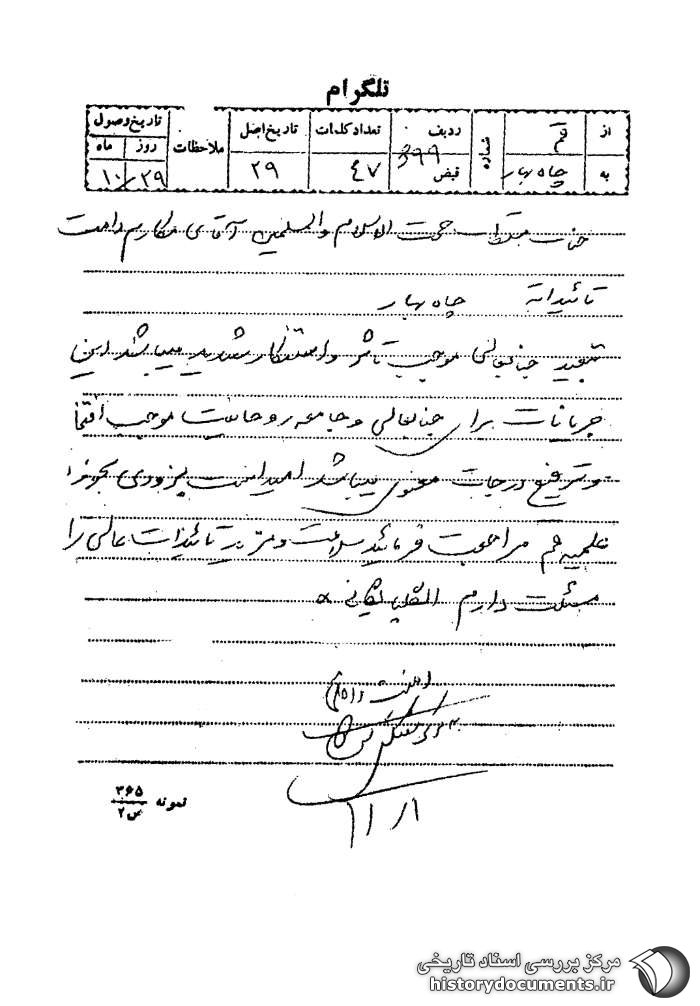 تلگرام
از قم شماره ردیف ۳۹۹ تعداد کلمات تاریخ اصل ملاحظات تاریخ وصول
به چاه بهار قبض ۴۷ ۲۹ روز ماه
۲۹/۱۰
جناب مستطاب حجت الاسلام والمسلمین آقای مکارم دامت
تائیداته چاه بهار
تبعید جنابعالی موجب تاثر و استنکار شدید میباشد این
جریانات برای جنابعالی و جامعه روحانیت موجب افتخا
و ترفیع درجات معنوی میباشد امید است بزودی بحوزه
علمیه قم مراجعت فرمائید سلامت و مزید تائیدات عالی را
مسئلت دارم الگلپایگانی
۱۱/۱
نمونه ۳۶۵
س۲
مرکز بررسی اسناد تاریخی
historydocuments.ir